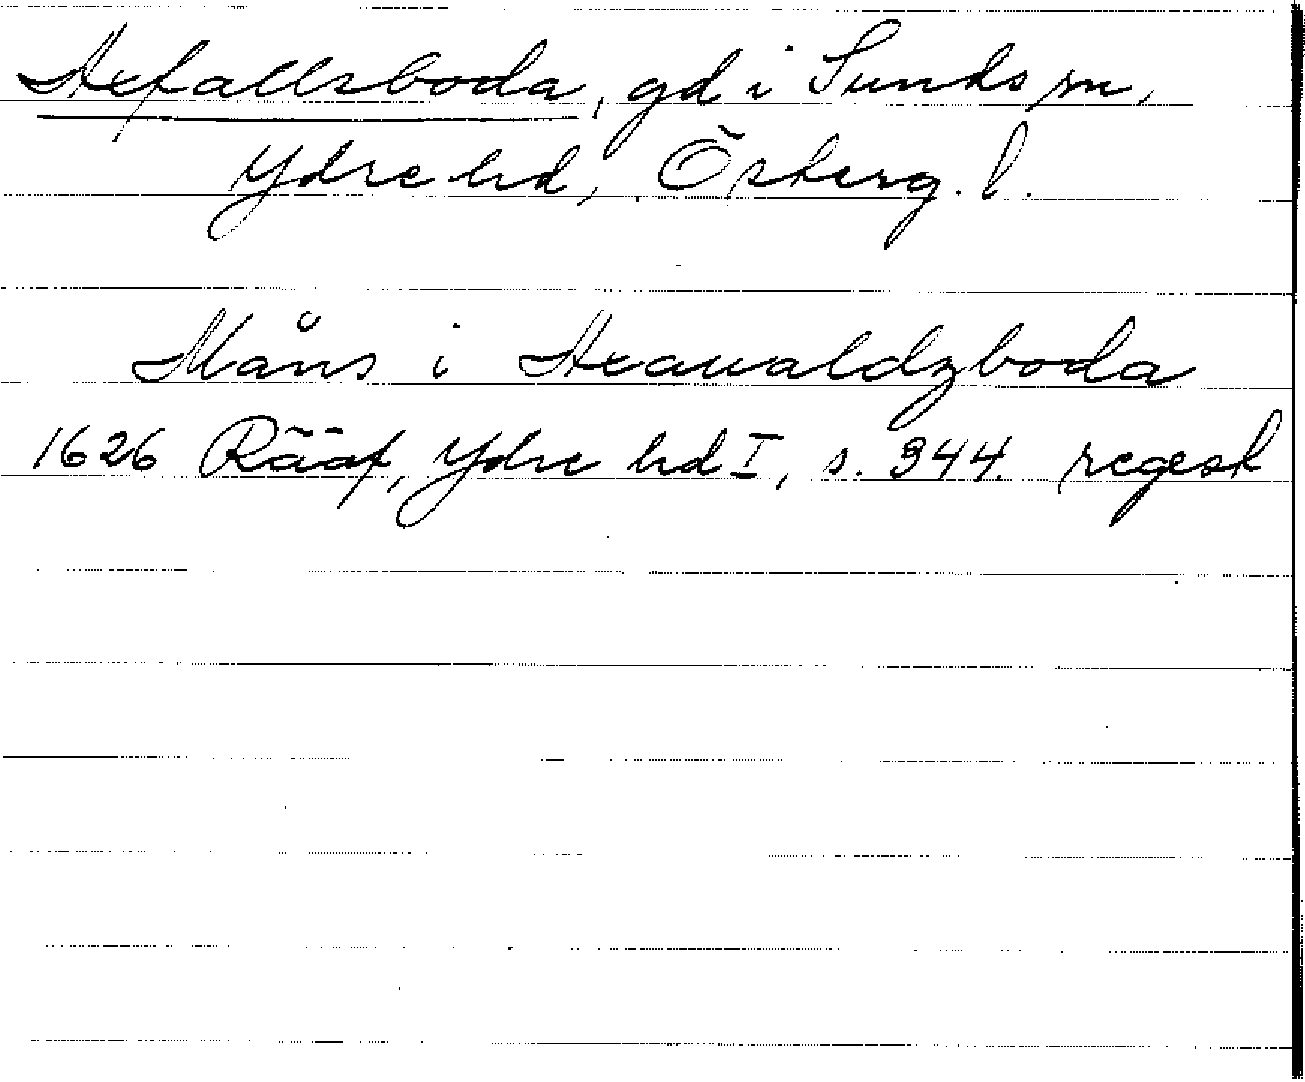 Hefallsboda, gd i Sunds sn,
Ydre hd, Österg. l.
Måns i Heawaldzboda
1626 Rääf, Ydre hd I, s. 344. regest